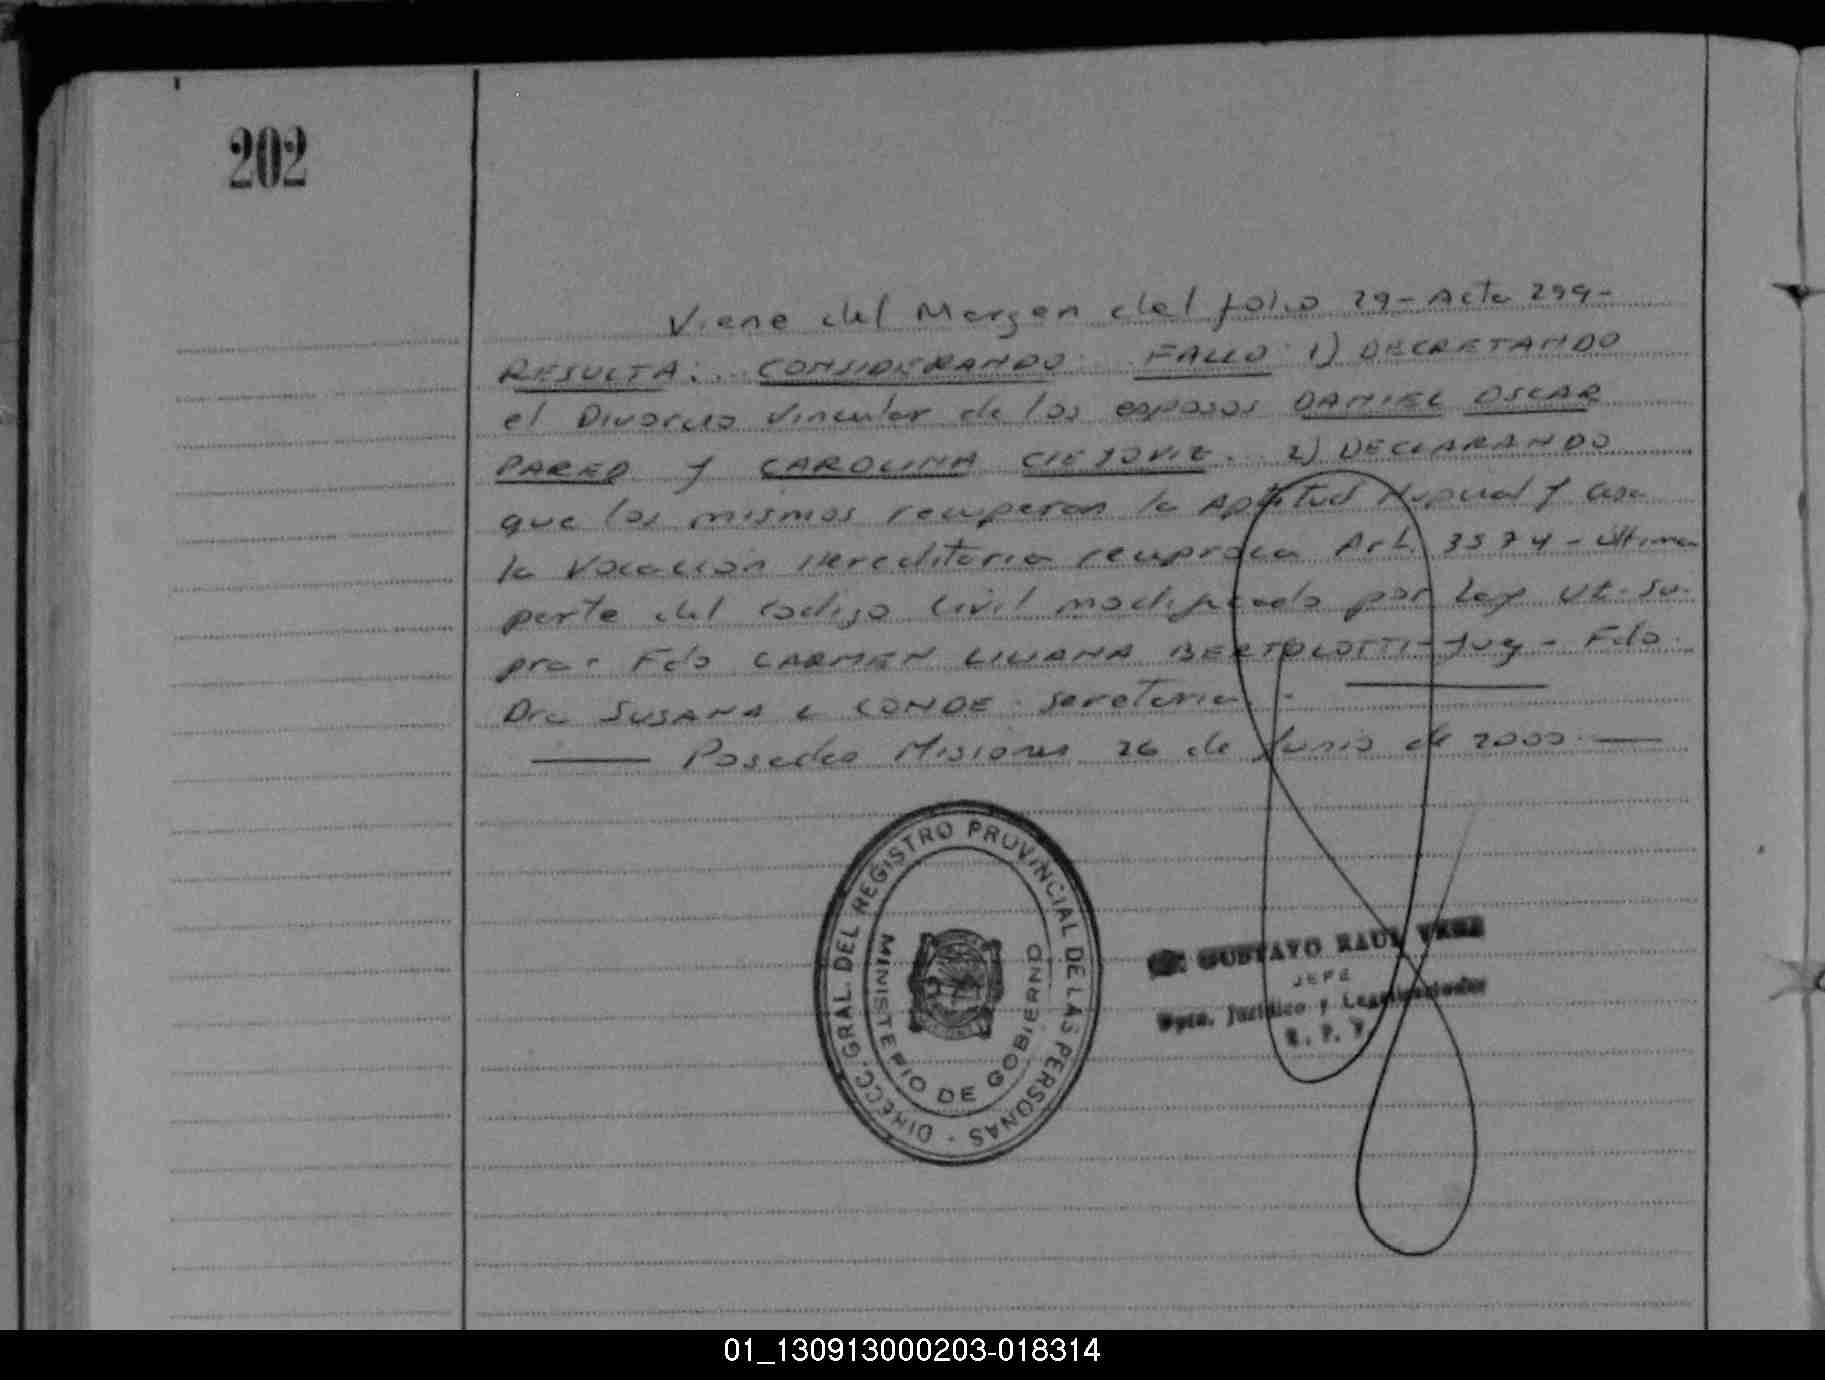 202
Viene del Margen del folio 29 - Acta 299 -
RESULTA: .. CONSIDERANDO FALLO 1) DECRETANDO
el Divorcio Vincular de los esposos DANIEL OSCAR
PARED y CAROLINA . 2) DECLARANDO
que los mismos recuperan la Aptitud Nupcial y
la Vocación Hereditaria reciproca Art. 3574 - última
parte del Codigo Civil modificado por Ley Ut-Su-
pra. Fdo CARMEN LILIANA BERTOLOTTI - Juez - Fdo.
Dra SUSANA L CONDE secretaria -
Posadas Misiones 26 de Junio de 2000
DIRECC. GRAL. DEL REGISTRO PROVINCIAL DE LAS PERSONAS
MINISTERIO DE GOBIERNO
GUSTAVO RAUL VERA
JEFE
Dpto. Jurídico y
R. P. P.
01_130913000203-018314